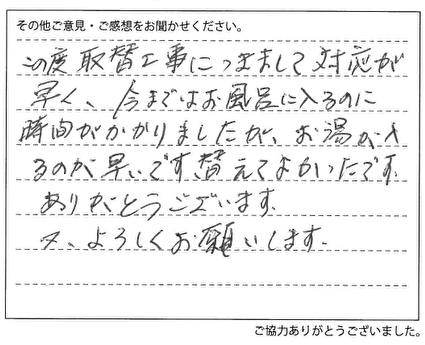 その他ご意見・ご感想をお聞かせください。
この度取替工事につきまして対応が
早く、今まではお風呂に入るのに
時間がかかりましたが、お湯が入
るのが早いです替えてよかったです.
ありがとうございます.
又、よろしくお願いします.
ご協力ありがとうございました。